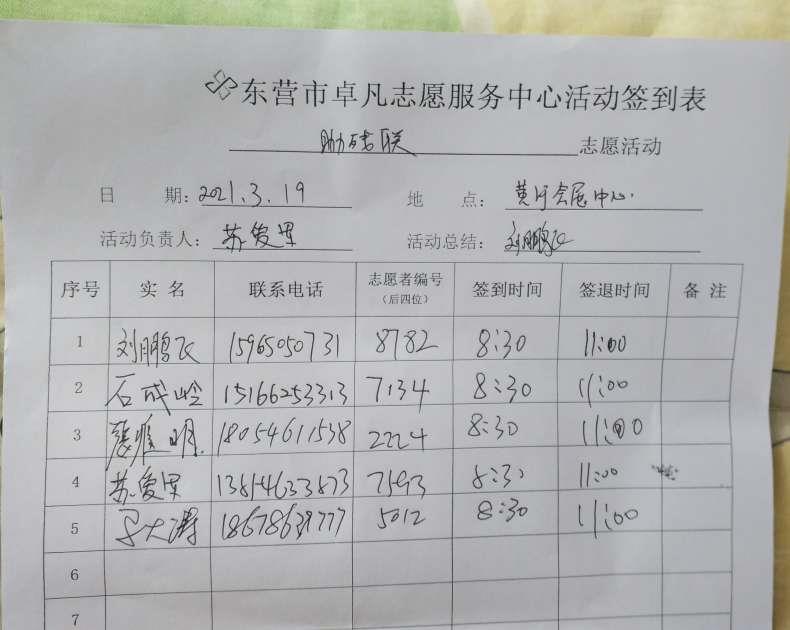 东营市卓凡志愿服务中心活动签到表
助残联 志愿活动
日 期: 2021.3.19 地 点: 黄河会展中心
活动负责人: 苏爱军 活动总结: 刘鹏飞
序号 实 名 联系电话 志愿者编号（后四位） 签到时间 签退时间 备 注
1 刘鹏飞 15965050731 8782 8:30 11:00
2 石成岭 15166253313 7134 8:30 11:00
3 张雅明 18054611538 2224 8:30 11:00
4 苏爱军 7593 8:30 11:00
5 大涛 5012 8:30 11:00
6
7